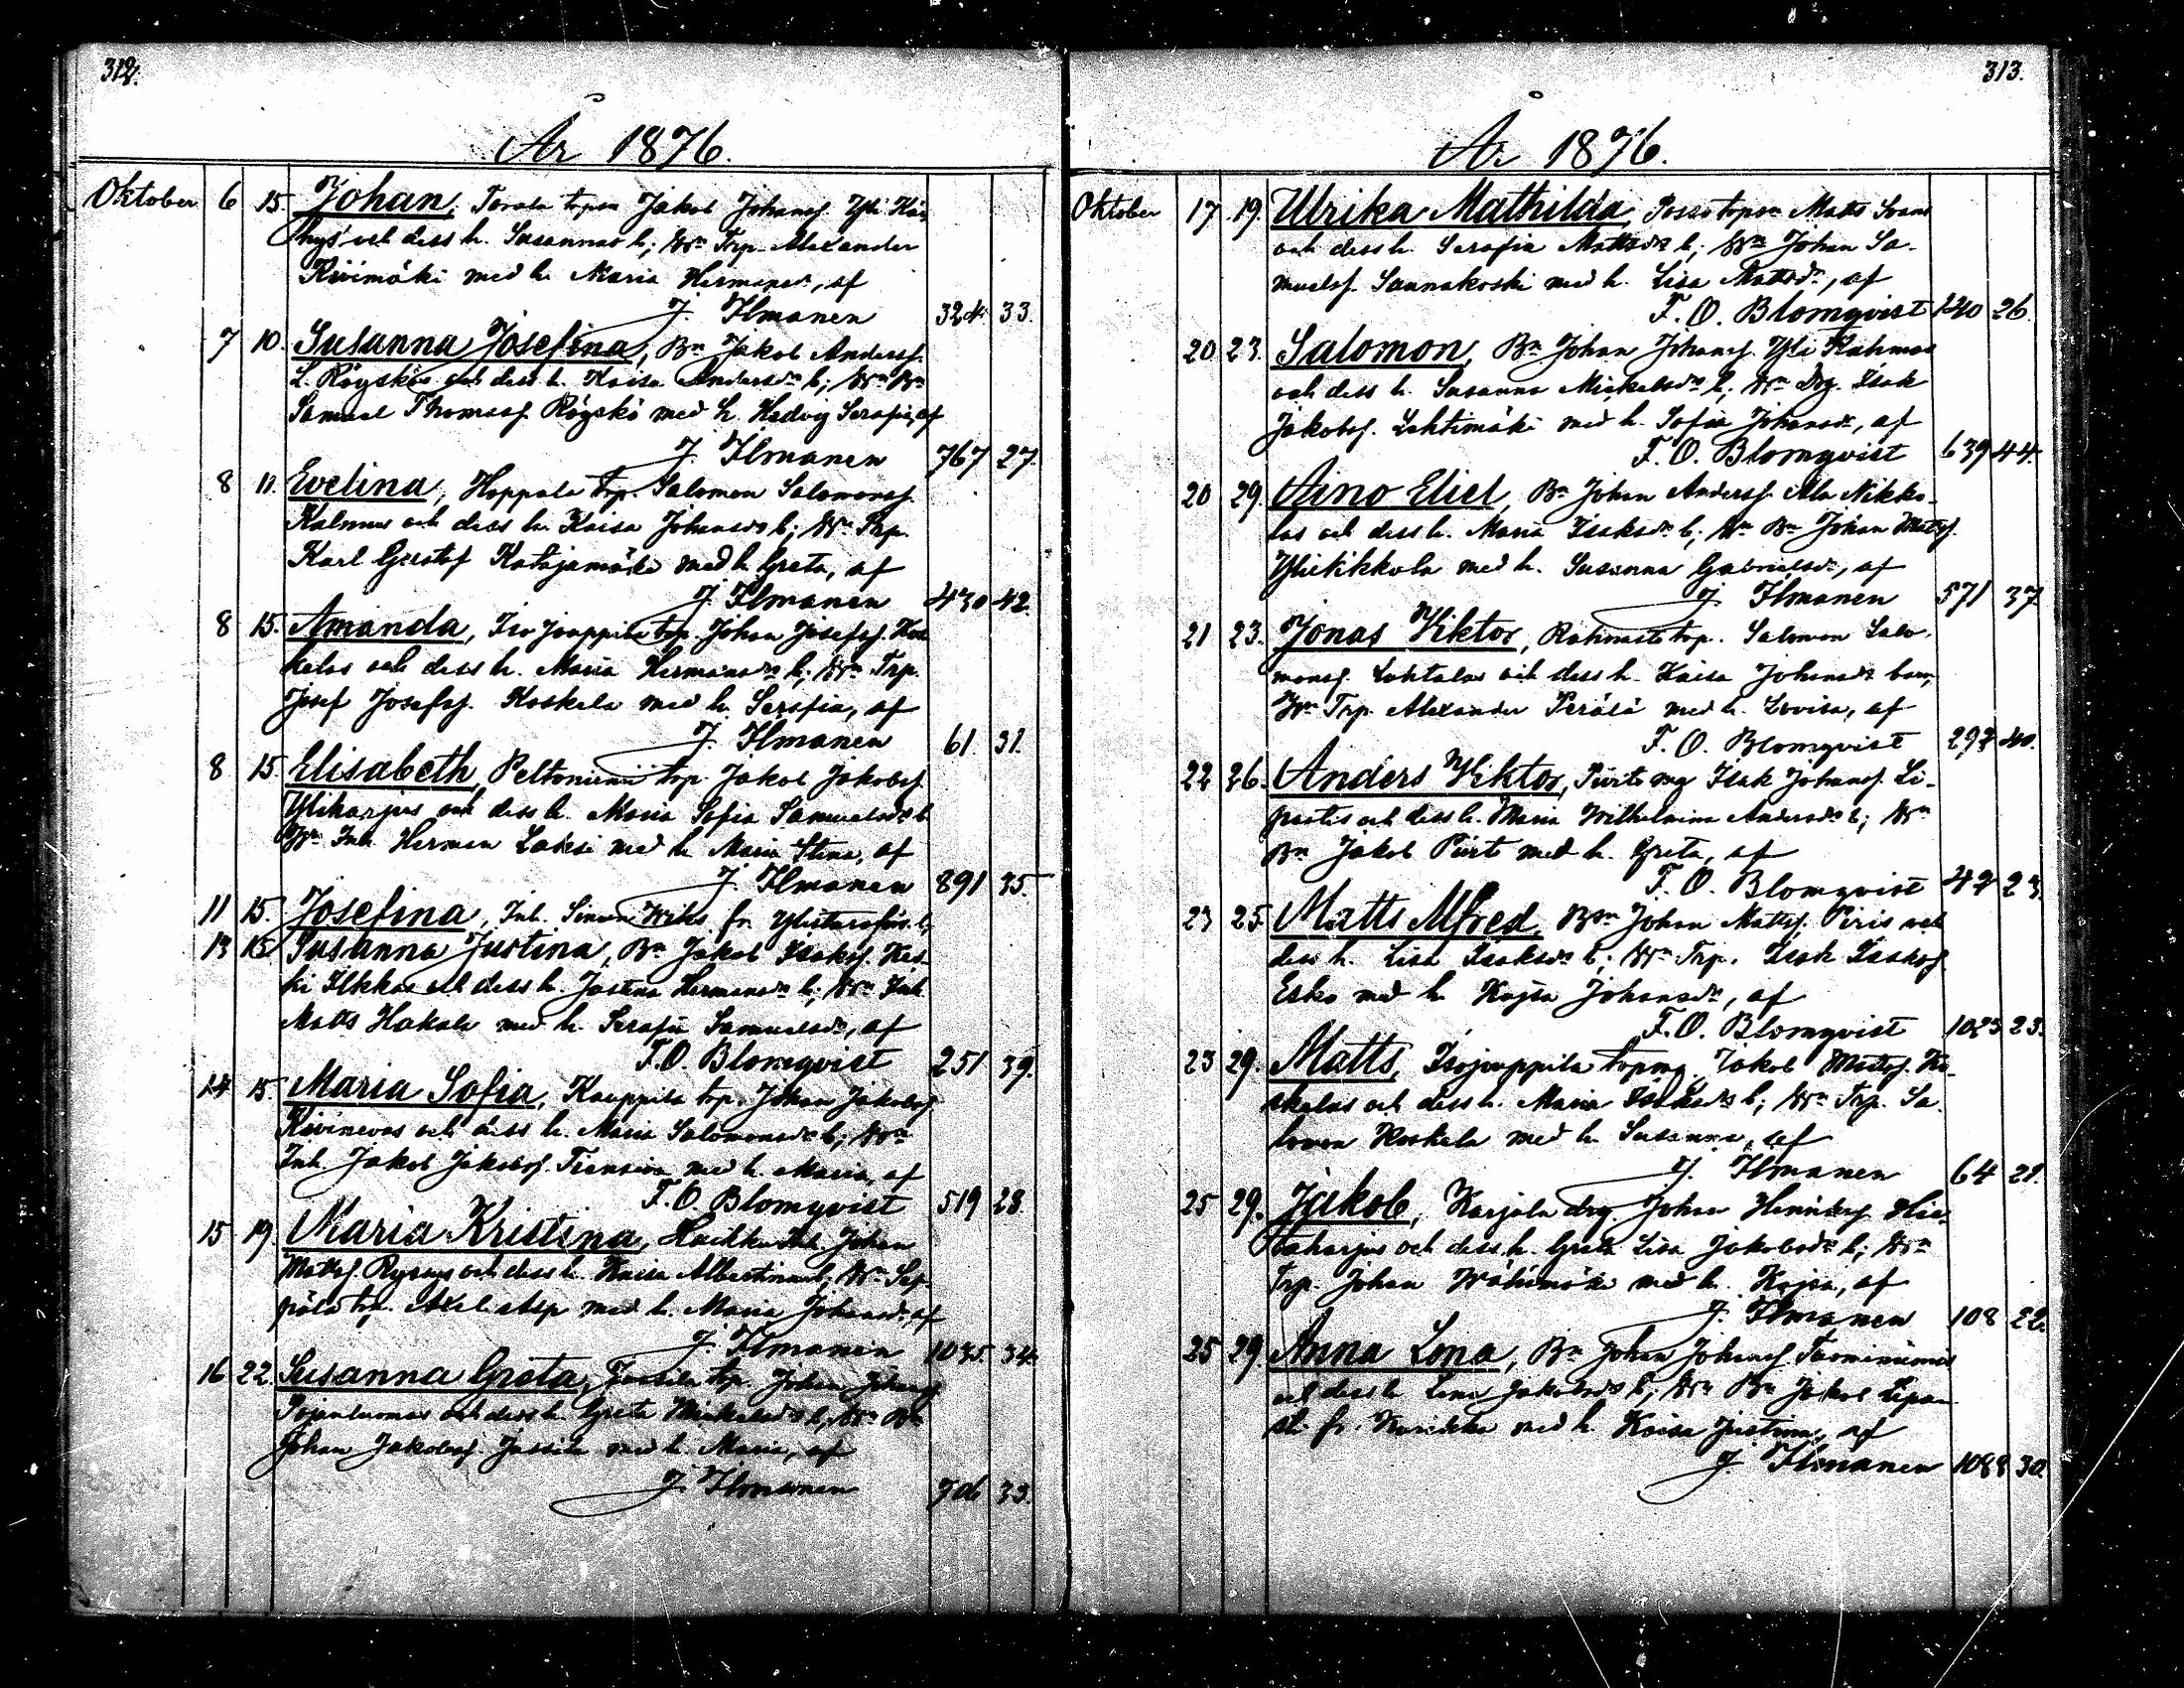 312.
År 1876.
Oktober 6 15. Johan, Torala Jakob Johansf. Yli
och dess h. Susannas b; Wn Trp. Alexander
Kivimäki med h. Maria Hermansdr, af
J. Ilmonen 324 33.
7 10. Susanna Josefina, Bn Jakob Andersf.
L. Röyskös och dess h. Kaisa Andersdrs b; Wn Bn
Samuel Thomasf. Röyskö med h. Hedvig Serafia, af
J. Ilmonen 767 27.
8 11. Evelina, Hoppala trp. Salomon Salomonsf.
och dess h. Kaisa Johansdrs b; Wn Trp.
Karl Gustaf Katajamäki med h. Greta, af
J. Ilmonen 430 42.
8 15. Amanda, Iso Jouppila trp. Johan Josefsf. Kos
kelas och dess h. Maria Hermansdrs b; Wn Trp.
Josef Josefsf. Koskela med h. Serafia, af
J. Ilmonen 61 31.
8 15. Elisabeth, Peltoniemi trp. Jakob Jakobsf.
Ylikarjus och dess h. Maria Sofia Samuelsdrs b
Wn Inh. Herman Laksi med h. Maria Stina, af
J. Ilmonen 891 35.
11 15. Josefina, Inh. fr. b;
13 15. Susanna Justina, Bn Jakob Isaksf. Kes
ki Ilkkas och dess h. Justina Hermansdrs b; Wn Inh.
Matts Hakala med h. Serafia Samuelsdr, af
F. O. Blomqvist 251 39.
14 15. Maria Sofia, Kauppila trp. Johan Jakobsf.
Kivinevas och dess h. Maria Salomonsdrs b; Wn
Inh. Jakob Jakobsf. med h. Maria, af
F. O. Blomqvist 519 28.
15 19 Maria Kristina, Inh. Johan
Mattsf. och dess h. Kaisa Albertinas b; Wn Sep
pälä trp. Axel Asp med h. Maria Johansdr, af
J. Ilmonen 1035 34.
16 22. Susanna Greta, Jussila trp. Johan Johansf.
Pojanluomas och dess h. Greta Mickelsdrs b; Wn Bn
Johan Jakobsf. Jussila med h. Maria, af
J. Ilmonen 706 33.
313.
År 1876.
Oktober 17 19. Ulrika Mathilda, Matts
och dess h. Serafia Mattsdrs b; Wn Johan Sa-
muelsf. Saunakoski med h. Lisa Mattsdr, af
F. O. Blomqvist 26.
20 23. Salomon, Bn Johan Johansf. Yli
och dess h. Susanna Mickelsdrs b; Wn Drg. Isak
Jakobsf. Lahtimäki med h. Sofia Johansdr, af
F. O. Blomqvist 639 44.
20 29. Aino Eliel, Bn Johan Andersf. Ala Nikko-
las och dess h. Maria Isaksdrs b; Wn Bn Johan Mattsf.
med h. Susanna Gabrielsdr, af
J. Ilmonen 571 37
21 23. Jonas Viktor, trp. Salomon Salo-
monsf. och dess h. Kaisa Johansdrs barn,
Wn Trp. Alexander Perälä med h. Lovisa, af
F. O. Blomqvist 297 40.
22 26. Anders Viktor, Isak Johansf. Li-
och dess h. Maria Wilhelmina Andersdrs b; Wn
Bn Jakob med h. Greta, af
F. O. Blomqvist 23.
23 25. Matts Alfred, Bsn Johan Mattsf. Piris och
dess h. Lisa Isaksdrs b; Wn Trp. Isak Isaksf.
Esko med h. Kajsa Johansdr, af
F. O. Blomqvist 1023 23.
23 29. Matts, Isojouppila Jakob Mattsf. Ko-
skelas och dess h. Maria Isaksdrs b; Wn Trp. Sa-
lomon Koskela med h. Susanna, af
J. Ilmonen 64 21.
25 29. Jakob, Karjala drg. Johan
och dess h. Greta Lisa Jakobsdrs b; Wn
Trp. Johan Wähämäki med h. Kajsa, af
J. Ilmonen 108 22.
25 29. Anna Lena, Bn Johan Johansf.
och dess h. Lena Jakobsdrs b; Wn Bn Jakob
fr. Kurikka med h. Kaisa Justina, af
J. Ilmonen 1088 30.